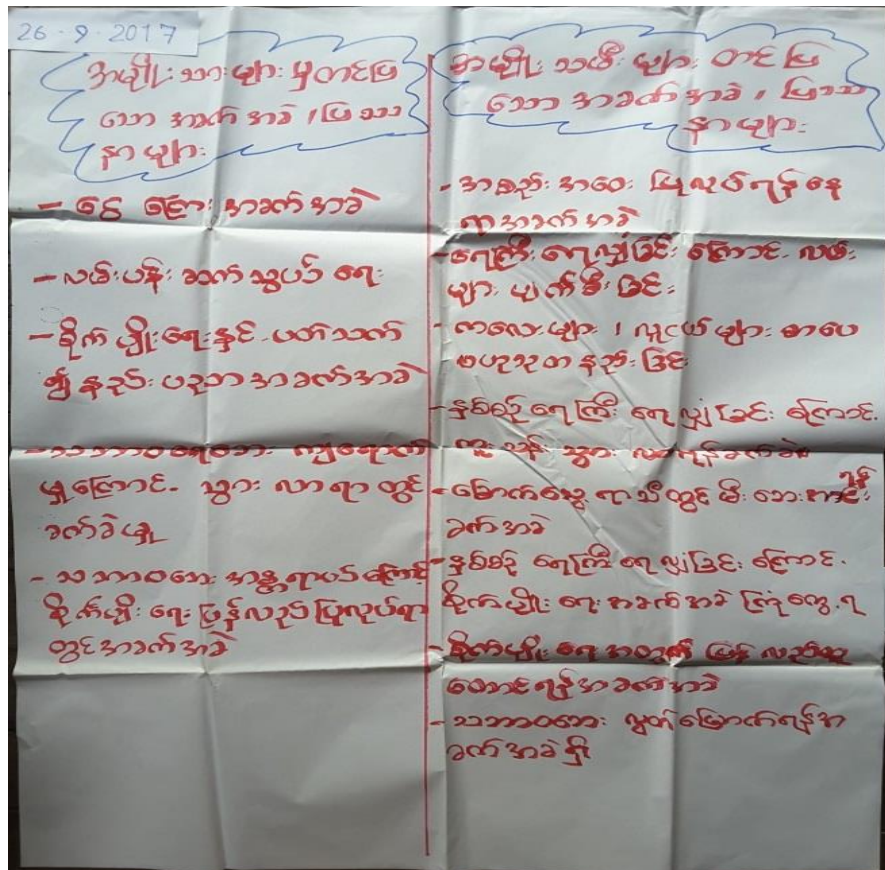 26.9.2017
အမျိုးသားများမှတင်ပြ
သော အခက်အခဲ ၊ ပြဿ
နာများ
- ငွေကြေးအခက်အခဲ
- လမ်းပန်း ဆက်သွယ်ရေး
- စိုက်ပျိုးရေးနှင့် ပတ်သက်
၍ နည်းပညာအခက်အခဲ
- သဘာဝဘေး ကျရောက်
မှုကြောင့် သွားလာရာတွင်
ခက်ခဲမှု
- သဘာဝဘေး အန္တရာယ်ကြောင့်
စိုက်ပျိုးရေး ပြန်လည်ပြုလုပ်ရာ
တွင်အခက်အခဲ
အမျိုးသမီးများ တင်ပြ
သော အခက်အခဲ ၊ ပြဿ
နာများ
- အစည်းအဝေး ပြုလုပ်ရန်နေ
ရာအခက်အခဲ
- ရေကြီး ရေလျှံခြင်းကြောင့် လမ်း
များ ပျက်စီးခြင်း
- ကလေးများ ၊ လူငယ်များ စာပေ
ဗဟုသုတနည်းခြင်း
- နှစ်စဉ် ရေကြီး ရေလျှံခြင်းကြောင့်
ကူးသန်းသွားလာရန်ခက်ခဲ
- ခြောက်သွေ့ရာသီတွင် မီးဘေး
ရန်
ခက်အခဲ
- နှစ်စဉ် ရေကြီးရေလျှံခြင်းကြောင့်
စိုက်ပျိုးရေး အခက်အခဲ ကြုံတွေ့ရ
- စိုက်ပျိုးရေးအတွက် ပြန်လည်ထူ
ထောင်ရန်အခက်အခဲ
- သဘာဝဘေး လွတ်မြောက်ရန်အ
ခက်အခဲရှိ